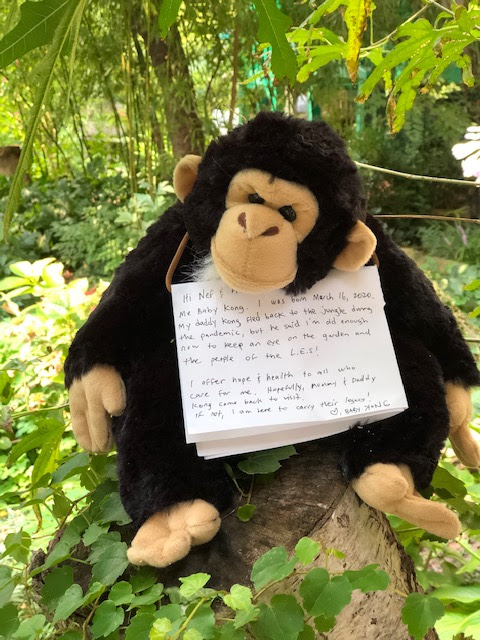 Hi Nef &
Me Baby Kong. I was born March 16, 2020.
My daddy Kong fled back to the jungle during
the pandemic, but he said i'm old enough
now to keep an eye on the garden and
the people of the L.E.S!
I offer hope & health to all who
care for me. Hopefully, mommy & Daddy
Kong come back to visit.
If not, I am here to carry their legacy!
♡, BABY KONG